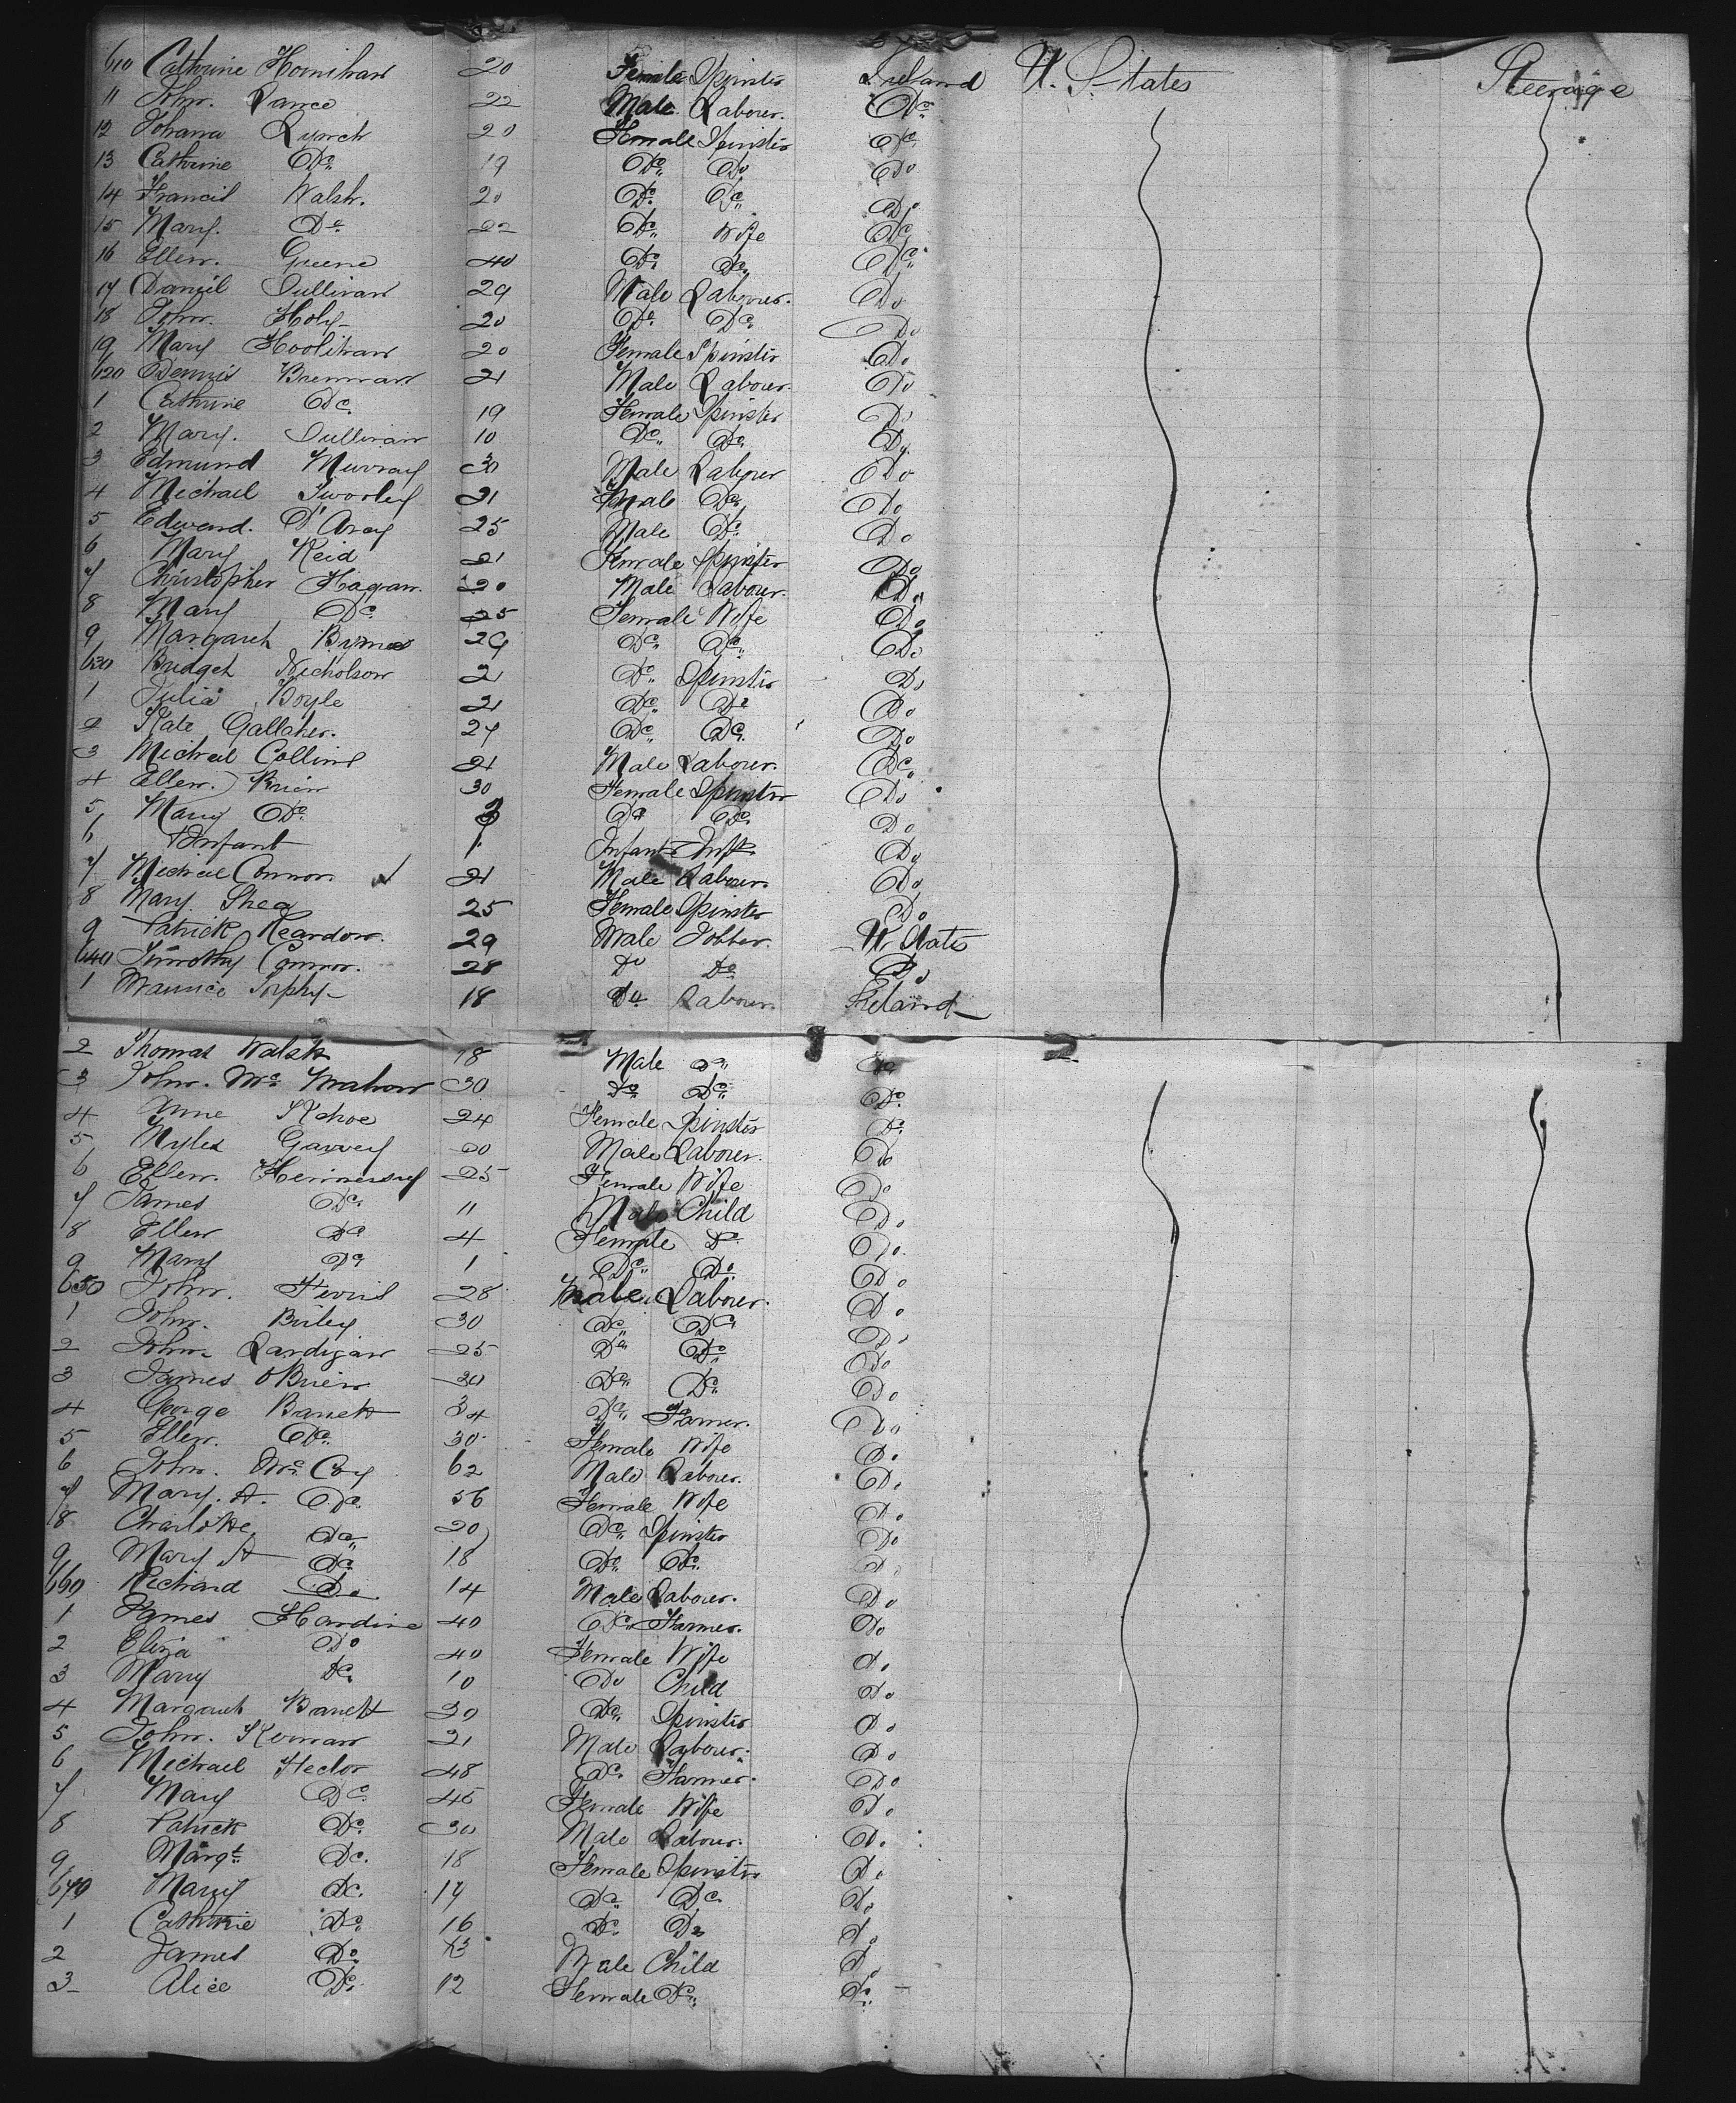 610 Cathrine Hounihan 20 Female Spinster Ireland U. States Steerage
11 John. Lance 22 Male Labourer. Do
12 Johana Lynch 20 Female Spinster Do
13 Cathrine Do 19 Do Do Do
14 Francis Walsh. 20 Do Do Do
15 Mary. Do 22 Do Wife Do
16 Ellen. Greene 40 Do Do Do
17 Daniel Sullivan 29 Male Labourer. Do
18 John. Holy 20 Do Do Do
19 Mary Hoolihan 20 Female Spinster Do
620 Dennis Brennan 21 Male Labourer. Do
1 Cathrine Do 19 Female Spinster Do
2 Mary. Sullivan 10 Do Do Do
3 Edmund Murray 30 Male Labourer Do
4 Michael Twooley 21 Male Do Do
5 Edward. D'Arcy 25 Male Do Do
6 Mary Reid 21 Female Spinster Do
7 Christopher Hagan. 20 Male Labourer. Do
8 Mary Do 25 Female Wife Do
9 Margaret Byrnes 29 Do Do Do
630 Bridget Nicholson 21 Do Spinster Do
1 Julia Boyle 21 Do Do Do
2 Kate Gallaher. 27 Do Do Do
3 Micheal Collins 21 Male Labourer. Do
4 Ellen. Brien 30 Female Spinster Do
5 Mary Do 3 Do Do Do
6 Infant 1 Infant Inft Do
7 Micheal Connor. 21 Male Labourer. Do
8 Mary Shea 25 Female Spinster Do
9 Patrick Reardon. 29 Male Jobber. U. States
640 Timothy Connor. 28 Do Do Do
1 Maurice Torphy 18 Do Labourer Ireland
2 Thomas Walsh 18 Male Do Do
3 John. Mc Mahon 30 Do Do Do
4 Anne Kehoe 24 Female Spinster Do
5 Myles Garvey 20 Male Labourer. Do
6 Ellen. Hennessy 25 Female Wife Do
7 James Do 11 Male Child Do
8 Ellen Do 4 Female Do Do
9 Mary Do 1 Do Do Do
650 John. 28 Male Labourer. Do
1 John. Briley 30 Do Do Do
2 John. Lardigan 25 Do Do Do
3 James O'Brien 30 Do Do Do
4 George Barrett 34 Do Farmer. Do
5 Ellen. Do 30 Female Wife Do
6 John. Mc Coy 62 Male Labourer. Do
7 Mary. A. Do 56 Female Wife Do
8 Charlotte Do 20 Do Spinster Do
9 Mary A Do 18 Do Do Do
660 Richard Do 14 Male Labourer. Do
1 James Hardine 40 Do Farmer. Do
2 Eliza Do 40 Female Wife Do
3 Mary Do 10 Do Child Do
4 Margaret Barrett 20 Do Spinster Do
5 John. Kernan 21 Male Labourer. Do
6 Michael Hector 48 Do Farmer. Do
7 Mary Do 45 Female Wife Do
8 Patrick Do 30 Male Labourer. Do
9 Margt Do. 18 Female Spinster Do
670 Mary Do. 17 Do Do Do
1 Cathrine Do 16 Do Do Do
2 James Do 13 Male Child Do
3 Alice Do 12 Female Do Do